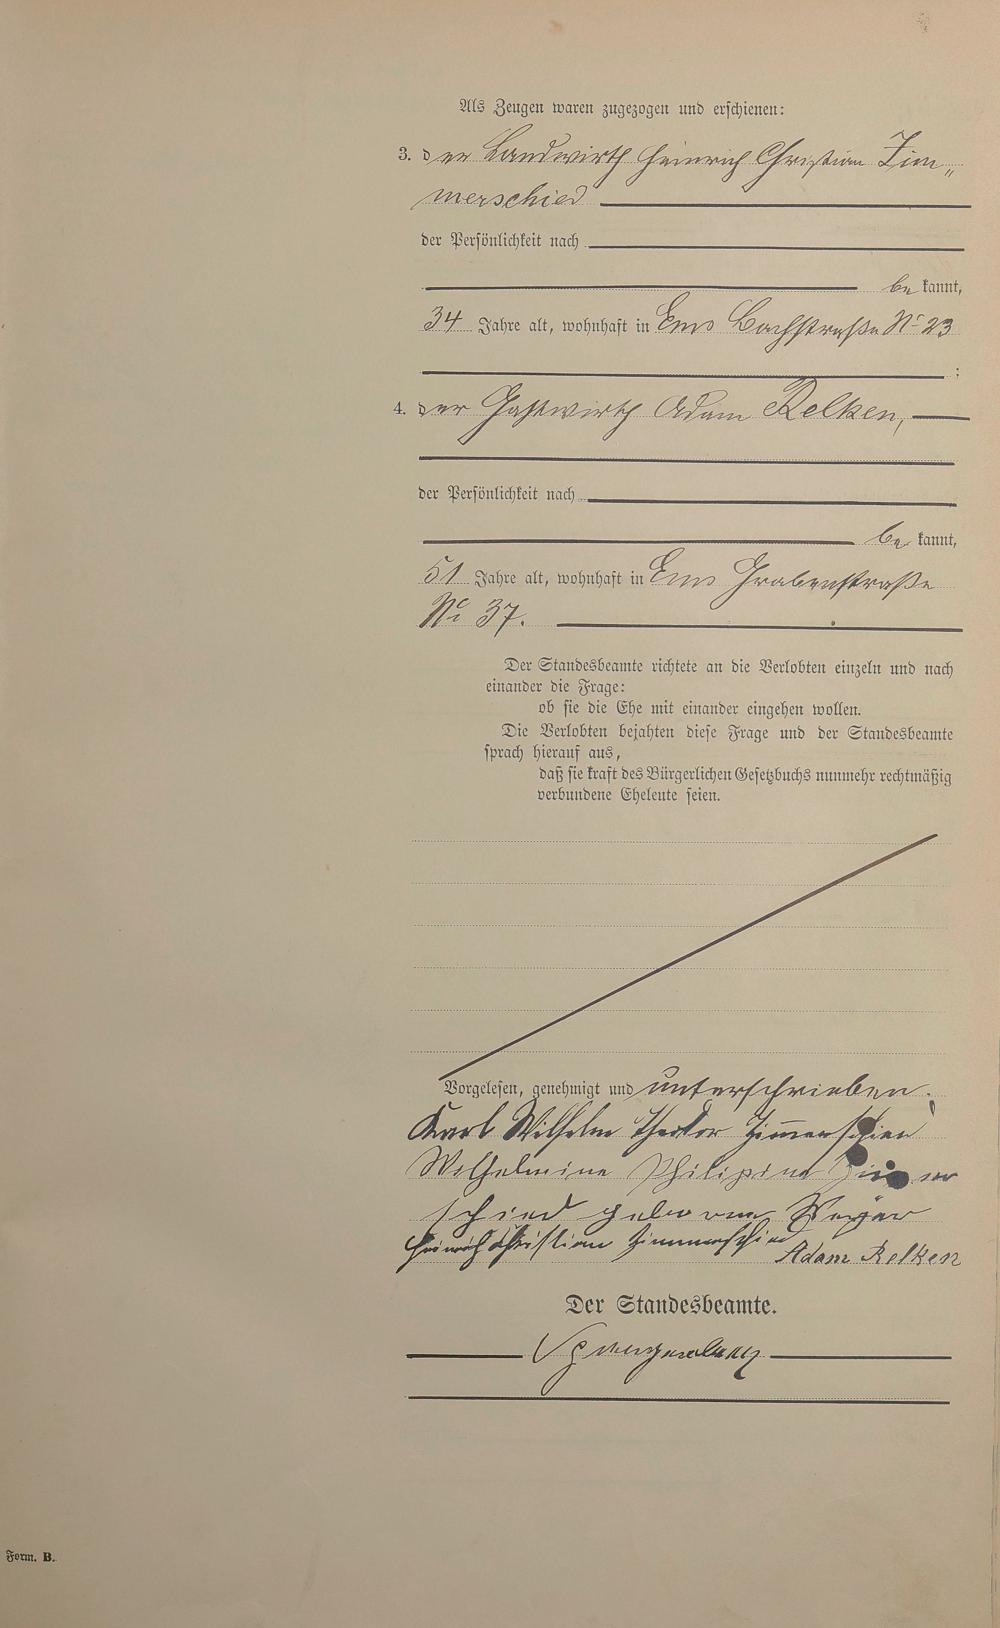 Als Zeugen waren zugezogen und erschienen:
3. der Landwirth Heinrich Christian Zim„
merschied
der Persönlichkeit nach
be kannt,
34 Jahre alt, wohnhaft in Ems Bachstraße No 23
;
4. der Gastwirth Adam Relken,
der Persönlichkeit nach
be kannt,
51 Jahre alt, wohnhaft in Ems Grabenstraße
No 37.
Der Standesbeamte richtete an die Verlobten einzeln und nach
einander die Frage:
ob sie die Ehe mit einander eingehen wollen.
Die Verlobten bejahten diese Frage und der Standesbeamte
sprach hierauf aus,
daß sie kraft des Bürgerlichen Gesetzbuchs nunmehr rechtmäßig
verbundene Eheleute seien.
Vorgelesen, genehmigt und unterschrieben.
Karl Wilhelm Theodor Zimmerschied
Wilhelmine Philipine Zimmer
schied geborene
Heinrich Christian Zimmerschied Adam Relken
Der Standesbeamte.
Form. B.